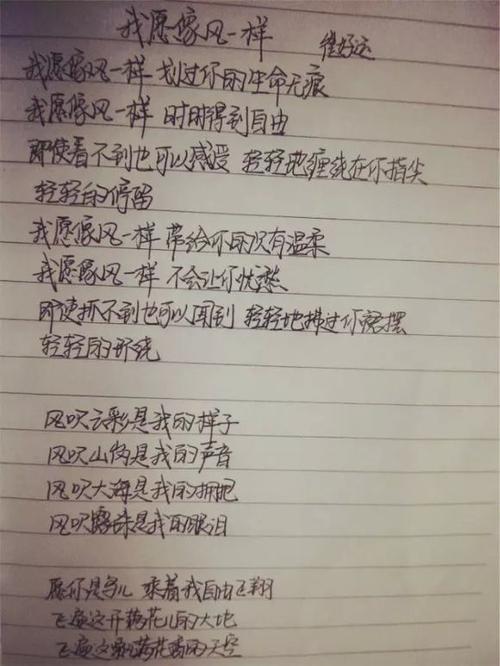 我愿像风一样 徐好运
我愿像风一样 划过你的生命无痕
我愿像风一样 时时得到自由
即使看不到也可以感受 轻轻地缠绕在你指尖
轻轻的停留
我愿像风一样 带给你的只有温柔
我愿像风一样 不会让你忧愁
即使抓不到也可以闻到 轻轻地拂过你裙摆
轻轻的环绕
风吹云彩是我的样子
风吹山岗是我的声音
风吹大海是我的拥抱
风吹露珠是我的眼泪
愿你是鸟儿 乘着我自由飞翔
飞遍这开满花儿的大地
飞遍这飘满花香的天空